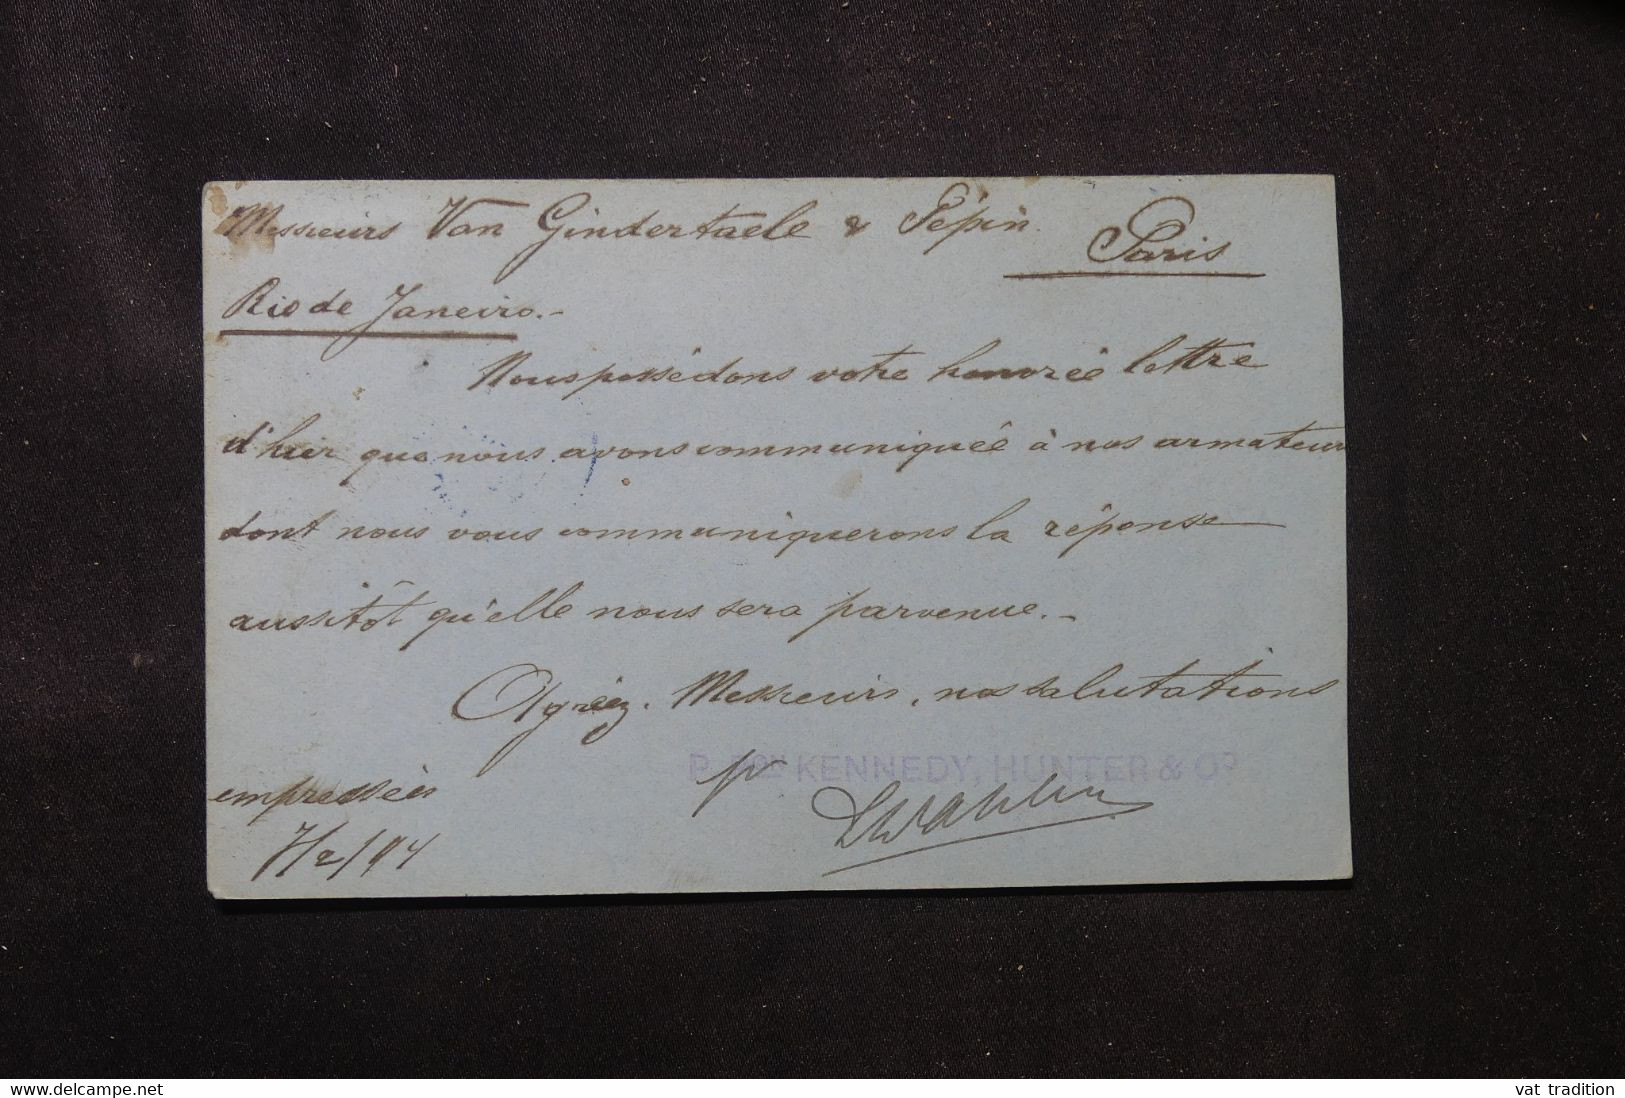 Messieurs Van Gindertaele & Pépin.
Paris
Rio de Janeiro.-
Nous possédons votre honorée lettre
d'hier que nous avons communiquée à nos armateurs
dont nous vous communiquerons la réponse
aussitôt qu'elle nous sera parvenue.-
Agréez, Messieurs, nos salutations
KENNEDY, HUNTER & Co
pr
empressées
7/2/94
www.delcampe.net
vat tradition